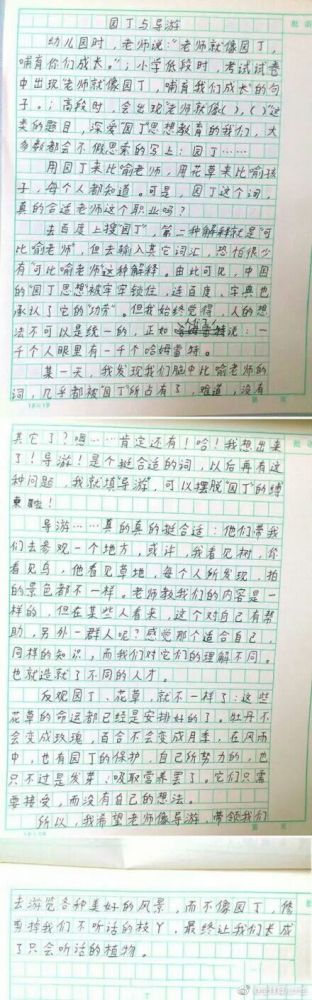 园丁与导游
幼儿园时,老师说:“老师就像园丁,
哺育你们成长。”;小学低段时,考试试卷
中出现“老师就像园丁,哺育我们成长”的句
子。;高段时,会出现“老师就像( ),( )”这
类的题目,深爱“园丁”思想教育的我们,大
多数都会不假思索的写上:园丁……
用园丁来比喻老师,用花草来比喻孩
子,每个人都知道。可是,园丁这个词,
真的合适老师这个职业吗?
去百度上搜“园丁”,第二种解释就是“可
比喻老师”,但去输入其它词汇,恐怕很少
有“可比喻老师”这种解释。由此可见,中国
的“园丁思想”被牢牢锁住,连百度、字典也
承认了它的“功劳”。但我始终觉得,人的想
法不可以是统一的,正如 人们说:一
千个人眼里有一千个哈姆雷特。
某一天,我发现我们脑中比喻老师的
词,几乎都被“园丁”所占有了,难道,没有
其它了?嗯……肯定还有!哈!我想出来
了!导游!是个挺合适的词,以后再有这
种问题,我就填“导游”,可以摆脱“园丁”的缚
束啦!
导游……真的真的挺合适:他们带我
们去参观一个地方,或许,我看见树,你
看见鸟,他看见草地,每个人所发现、拍
的景色都不一样。老师教我们的内容是一
样的,但在某些人看来,这个对自己有帮
助,另外一群人呢?感觉那个适合自己,
同样的知识,而我们对它们的理解不同。
也就造就了不同的人才。
反观园丁、花草,就不一样了:这些
花草的命运都已经是安排好的了。牡丹不
会变成玫瑰,百合不会变成月季,在风雨
中,也有园丁的保护,自己所努力的,也
只不过是发芽、吸取营养罢了。它们只需
要接受,而没有自己的想法。
所以,我希望老师像导游,带领我们
去游览各种美好的风景,而不像园丁,修
剪掉我们不听话的枝丫,最终让我们长成
了只会听话的植物。